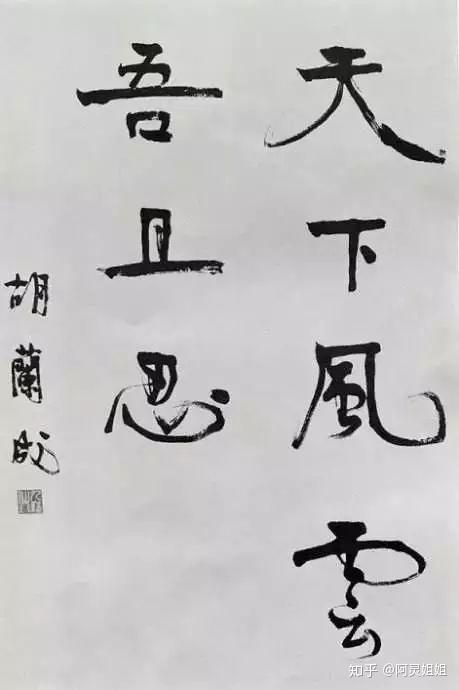 天下風雲
吾且忍
胡蘭成
知乎 @阿灵姐姐